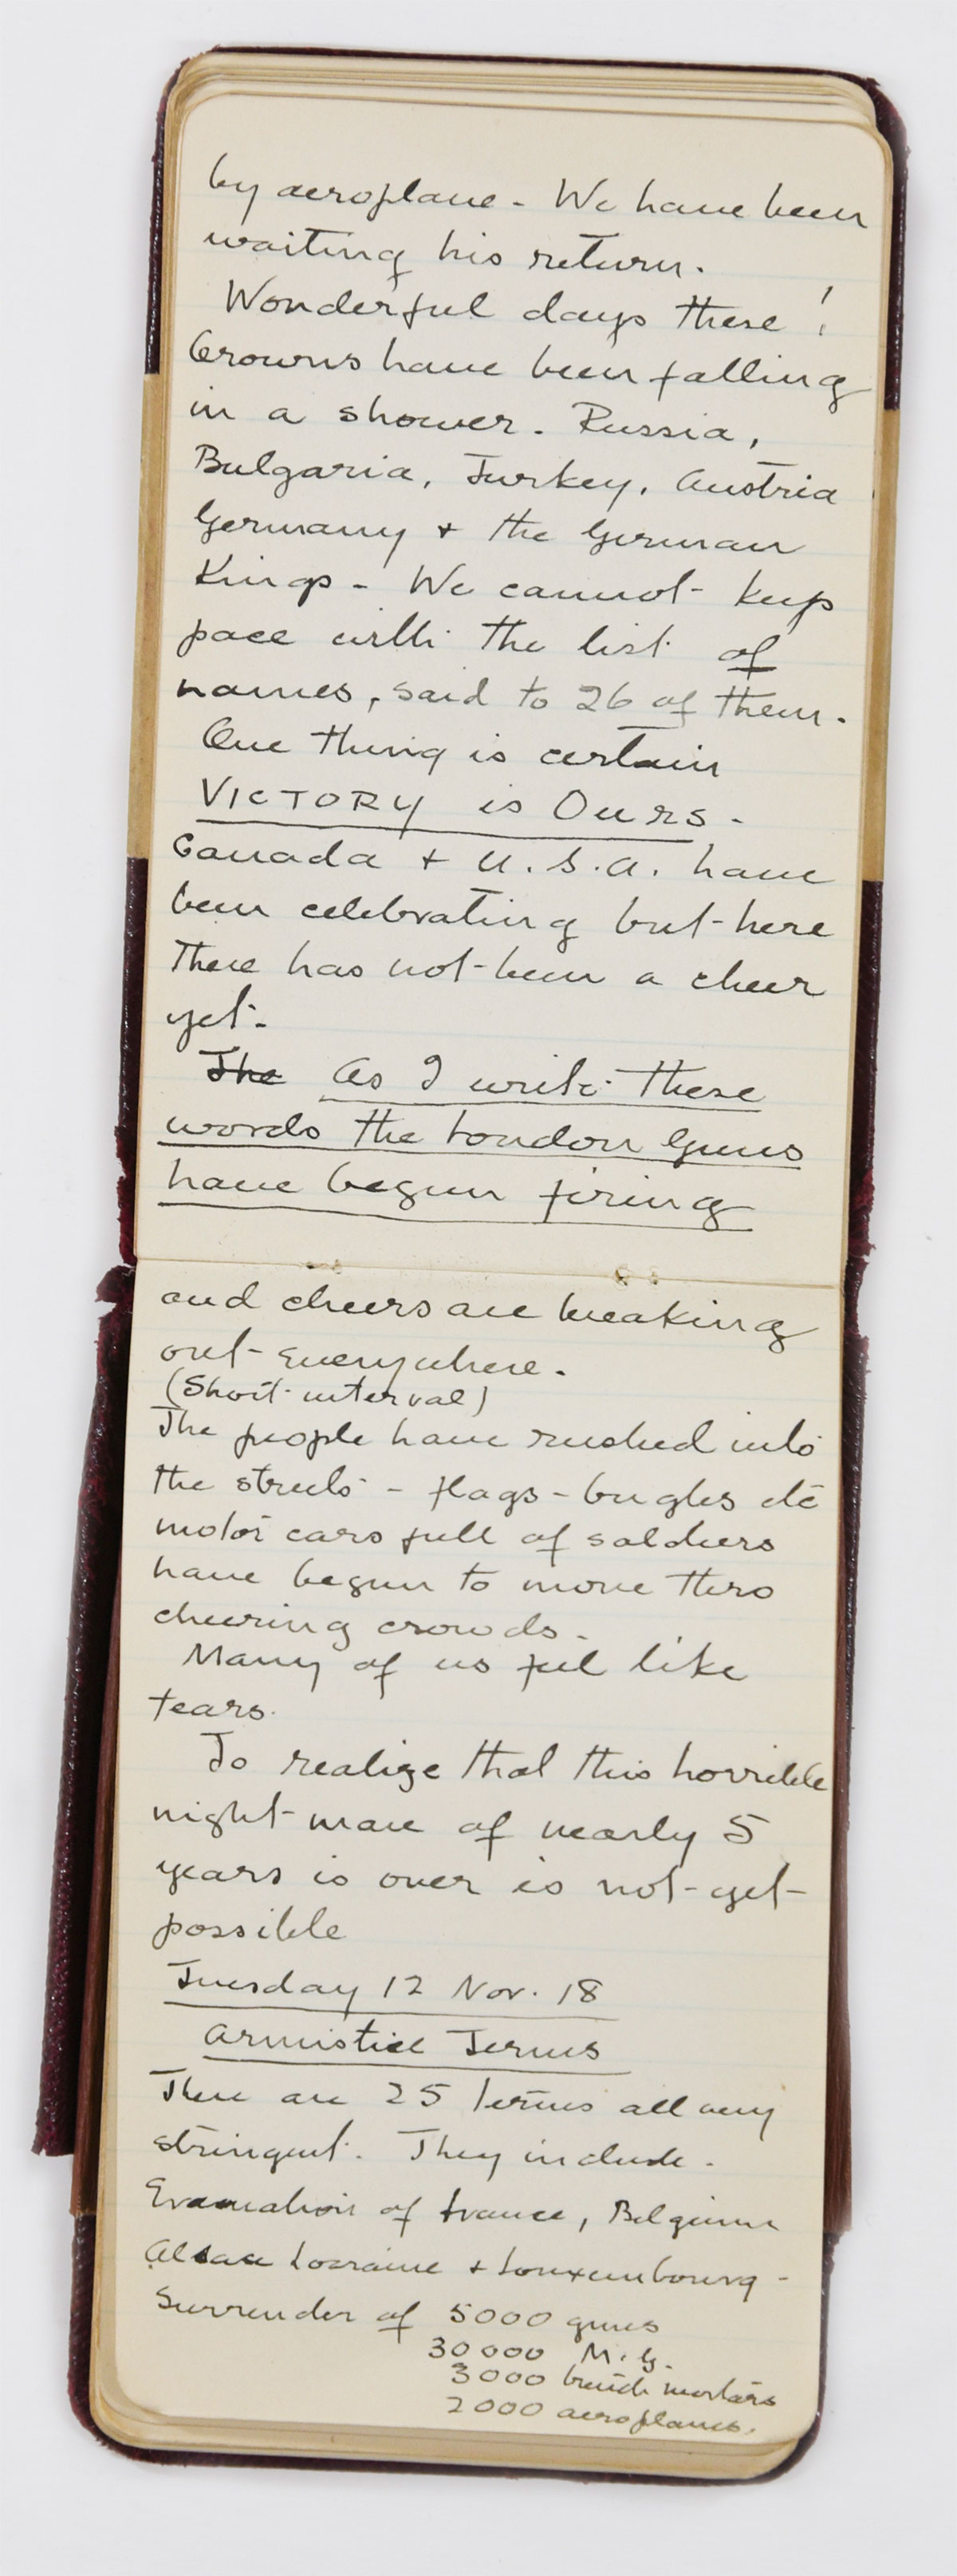 by aeroplane - We have been
waiting his return.
Wonderful days these !
Crowns have been falling
in a shower. Russia,
Bulgaria, Turkey, Austria
Germany + the German
Kings - We cannot keep
pace with the list of
names, said to 26 of them.
One thing is certain
VICTORY is Ours -
Canada + U.S.A. have
been celebrating but here
there has not been a cheer
yet -
The As I write these
words the London Guns
have begun firing
and cheers are breaking
out everywhere.
(Short interval)
The people have rushed into
the streets - flags - bugles etc
motor cars full of soldiers
have begun to move thro
cheering crowds.
Many of us feel like
tears.
To realize that this horrible
night mare of nearly 5
years is over is not yet
possible
Tuesday 12 Nov. 18
Armistice Terms
There are 25 terms all very
stringent. They include.
Evacuation of France, Belgium
Alsace Lorraine + Louxembourg -
Surrender of 5000 guns
30000 M.G.
3000 trench mortars
2000 aeroplanes.